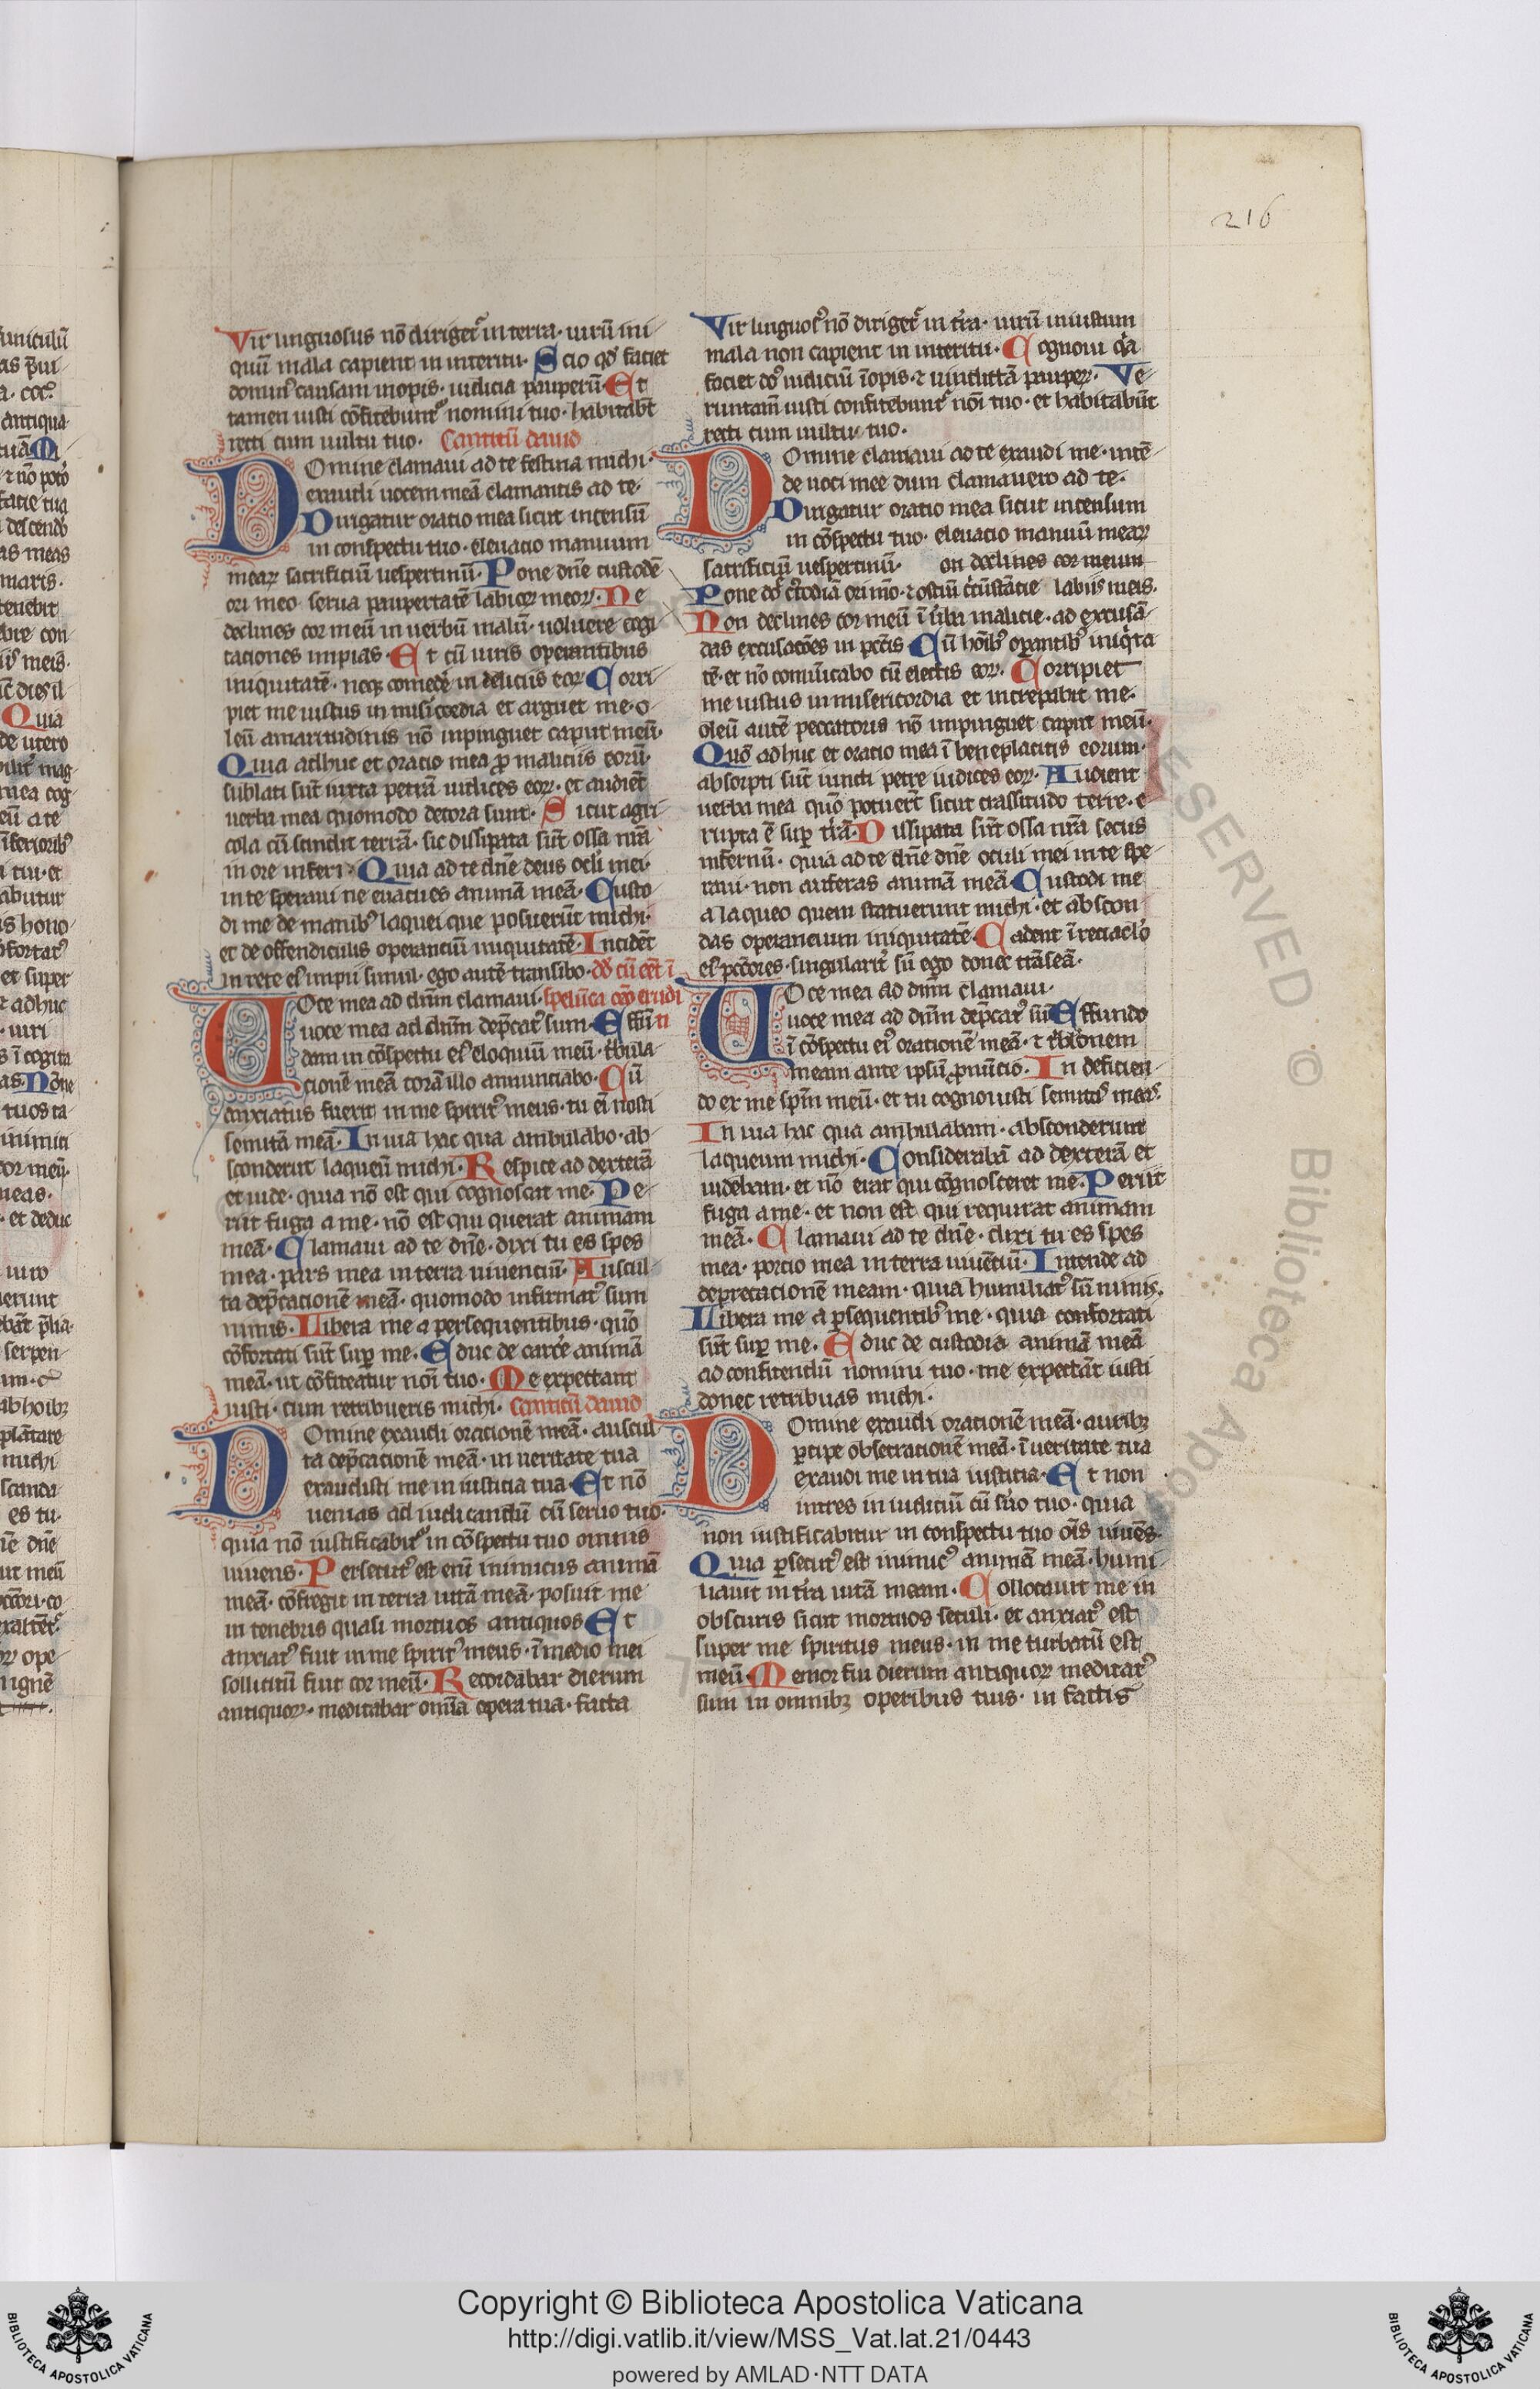 216
Vir linguosus nō dirigetᷣ in terra· uirū ini
quū mala capient in interitu· Scio qđ faciet
dominꝰ causam inopis· iudicia pauperū· Et
tamen iusti cōfitebuntᷣ nomini tuo· habitabt̄
recti cum uultu tuo· Canticū dauid
Domine clamaui ad te festina michi·
exaudi uocem meā clamantis ad te·
Dirigatur oratio mea sicut incensū
in conspectu tuo· eleuacio manuum
mearꝝ sacrificiū uespertinū· Pone dn̄e custodē
ori meo serua paupertatē labiorꝝ meorꝝ· Ne
declines cor meū in uerbū malū· uoluere cogi
taciones impias· Et cū uiris operantibus
iniquitatē· neqꝫ comedē in deliciis eorꝝ Corri
piet me iustus in mis̄icordia et arguet me· o
leū amaritudinis nō inpinguet caput meū·
Quia adhuc et oratio mea ꝓ maliciis eorū·
sublati sūt iuxta petrā iudices eorꝝ· et audiēt
uerba mea quomodo decora sunt· Sicut agri
cola cū scindit terrā· sic dissipata sūt ossa nr̄a
in ore inferi· Quia ad te dn̄e deus ocl̓i mei·
in te speraui ne euacues animā meā· Custo
di me de manibꝰ laquei que posuerūt michi·
et de offendiculis operanciū iniquitatē· Incidēt
in rete eiꝰ impii simul· ego autē transibo· dđ cū eēt ī
Uoce mea ad dn̄m clamaui· spelūca
uoce mea ad dn̄m dep̄catꝰ sum· Effū
dam in cōspectu eiꝰ eloquiū meū· t̓bula
cionē meā corā illo annunciabo· Cū
anxiatus fuerit in me spiritꝰ meus· tu ei̅ nosti
semitā meā· In uia hac qua ambulabo· ab
sconderūt laqueū michi· Respice ad dexterā
et uide· quia nō est qui cognoscat me· Pe
riit fuga a me· nō est qui querat animam
meā· Clamaui ad te dn̄e· dixi tu es spes
mea· pars mea in terra uiuenciū· Auscul
ta dep̄cacionē meā· quomodo infirmatꝰ sum
nimis· Libera me a persequentibus· quō
cōfortati sūt suꝑ me· Educ de carc̓e animā
meā· ut cōfiteatur noī tuo· Me expectant
iusti· cum retribueris michi· Canticū dauid
Domine exaudi oracionē meā· auscul
ta dep̄cacionē meā· in ueritate tua
exaudisti me in iusticia tua· Et nō
uenias ad iudicandū cū seruo tuo·
quia nō iustificabitᷣ in cōspectu tuo omnis
uiuens· Persecutꝰ est eni̅ inimicus animā
meā· cōfregit in terra uitā meā· posuit me
in tenebris quasi mortuos antiquos Et
anxiatꝰ fuit in me spiritꝰ meus· ī medio mei
sollicitū fuit cor meū· Recordabar dierum
antiquorꝝ· meditabar omīa opera tua· facta
Vir linguosꝰ nō dirigetᷣ in t̓ra· uirū iniustum
mala non capient in interitu· Cognoui qꝛa
faciet dꝰ iudiciū īopis· ⁊ uindictā pauperꝝ· Ve
runtamē iusti confitebuntᷣ noī tuo· et habitabūt
recti cum uultu tuo·
Domine clamaui ad te exaudi me· intē
de uoci mee dum clamauero ad te·
Dirigatur oratio mea sicut incensum
in cōspectu tuo· eleuacio manuū mearꝝ
sacrificiū uespertinū· on declines cor meum
Pone dn̄e c̓todiā ori m̄o· ⁊ ostiū c̓cūstācie labiis meis·
Non declines cor meū ī u̓ba malicie· ad excusā
das excusacōes in pcc̄tis Cū hōibꝰ oꝑantibꝰ iniqᷓta
tē· et nō comūicabo cū electis eorꝝ· Corripiet
me iustus in misericordia et increpabit me·
oleū autē peccatoris nō impinguet caput meū·
Quō adhuc et oratio mea ī beneplacitis eorum·
absorpti sūt iuncti petre iudices eorꝝ· Audient
uerba mea quō potuerūt sicut crassitudo terre· e
rupta ē suꝑ t̓rā· Dissipata sūt ossa nr̄a secus
infernū· quia ad te dn̄e dn̄e oculi mei in te spe
raui· non auferas animā meā· Custodi me
a laqueo quem statuerunt michi· et abscon
das operancium iniquitatē Cadent ī reciacl̓o
eiꝰ pcc̄ores· singularit̓ sū ego donec trāseā·
Uoce mea ad dn̄m clamaui·
uoce mea ad dn̄m dep̄catꝰ sū Effundo
ī cōspectu eiꝰ orationē meā· ⁊ t̓bl̓onem
meam ante ipsū ꝓnūcio· In deficien
do ex me sp̄m meū· et tu cognouisti semitas meas·
In uia hac qua ambulabam· absconderunt
laqueum michi· Considerabā ad dexterā et
uidebam· et nō erat qui cognosceret me· Periit
fuga a me· et non est qui requirat animam
meā· Clamaui ad te dn̄e· dixi tu es spes
mea· porcio mea in terra uiuēciū· Intende ad
deprecacionē meam· quia humiliatꝰ sū nimis·
Libera me a ꝑsequentibꝰ me· quia confortati
sūt suꝑ me· Educ de custodia animā meā
ad confitendū nomini tuo· me expectāt iusti
donec retribuas michi·
Domine exaudi orationē meā· auribꝫ
ꝑcipe obsecrationē meā· ī ueritate tua
exaudi me in tua iusticia· Et non
intres in iudiciū cū s̓uo tuo· quia
non iustificabitur in conspectu tuo oīs uiuēs·
Quia ꝑsecutꝰ est inimicꝰ animā meā· humi
liauit in t̓ra uitā meam· Collocauit me in
obscuris sicut mortuos seculi· et anxiatꝰ est
super me spiritus meus· in me turbatū est
meū· Memor fui dierum antiquorꝝ meditatꝰ
sum in omnibꝫ operibus tuis· in factis
Copyright © Biblioteca Apostolica Vaticana
http://digi.vatlib.it/view/MSS_Vat.lat.21/0443
powered by AMLAD·NTT DATA
BIBLIOTECA APOSTOLICA VATICANA
BIBLIOTECA APOSTOLICA VATICANA